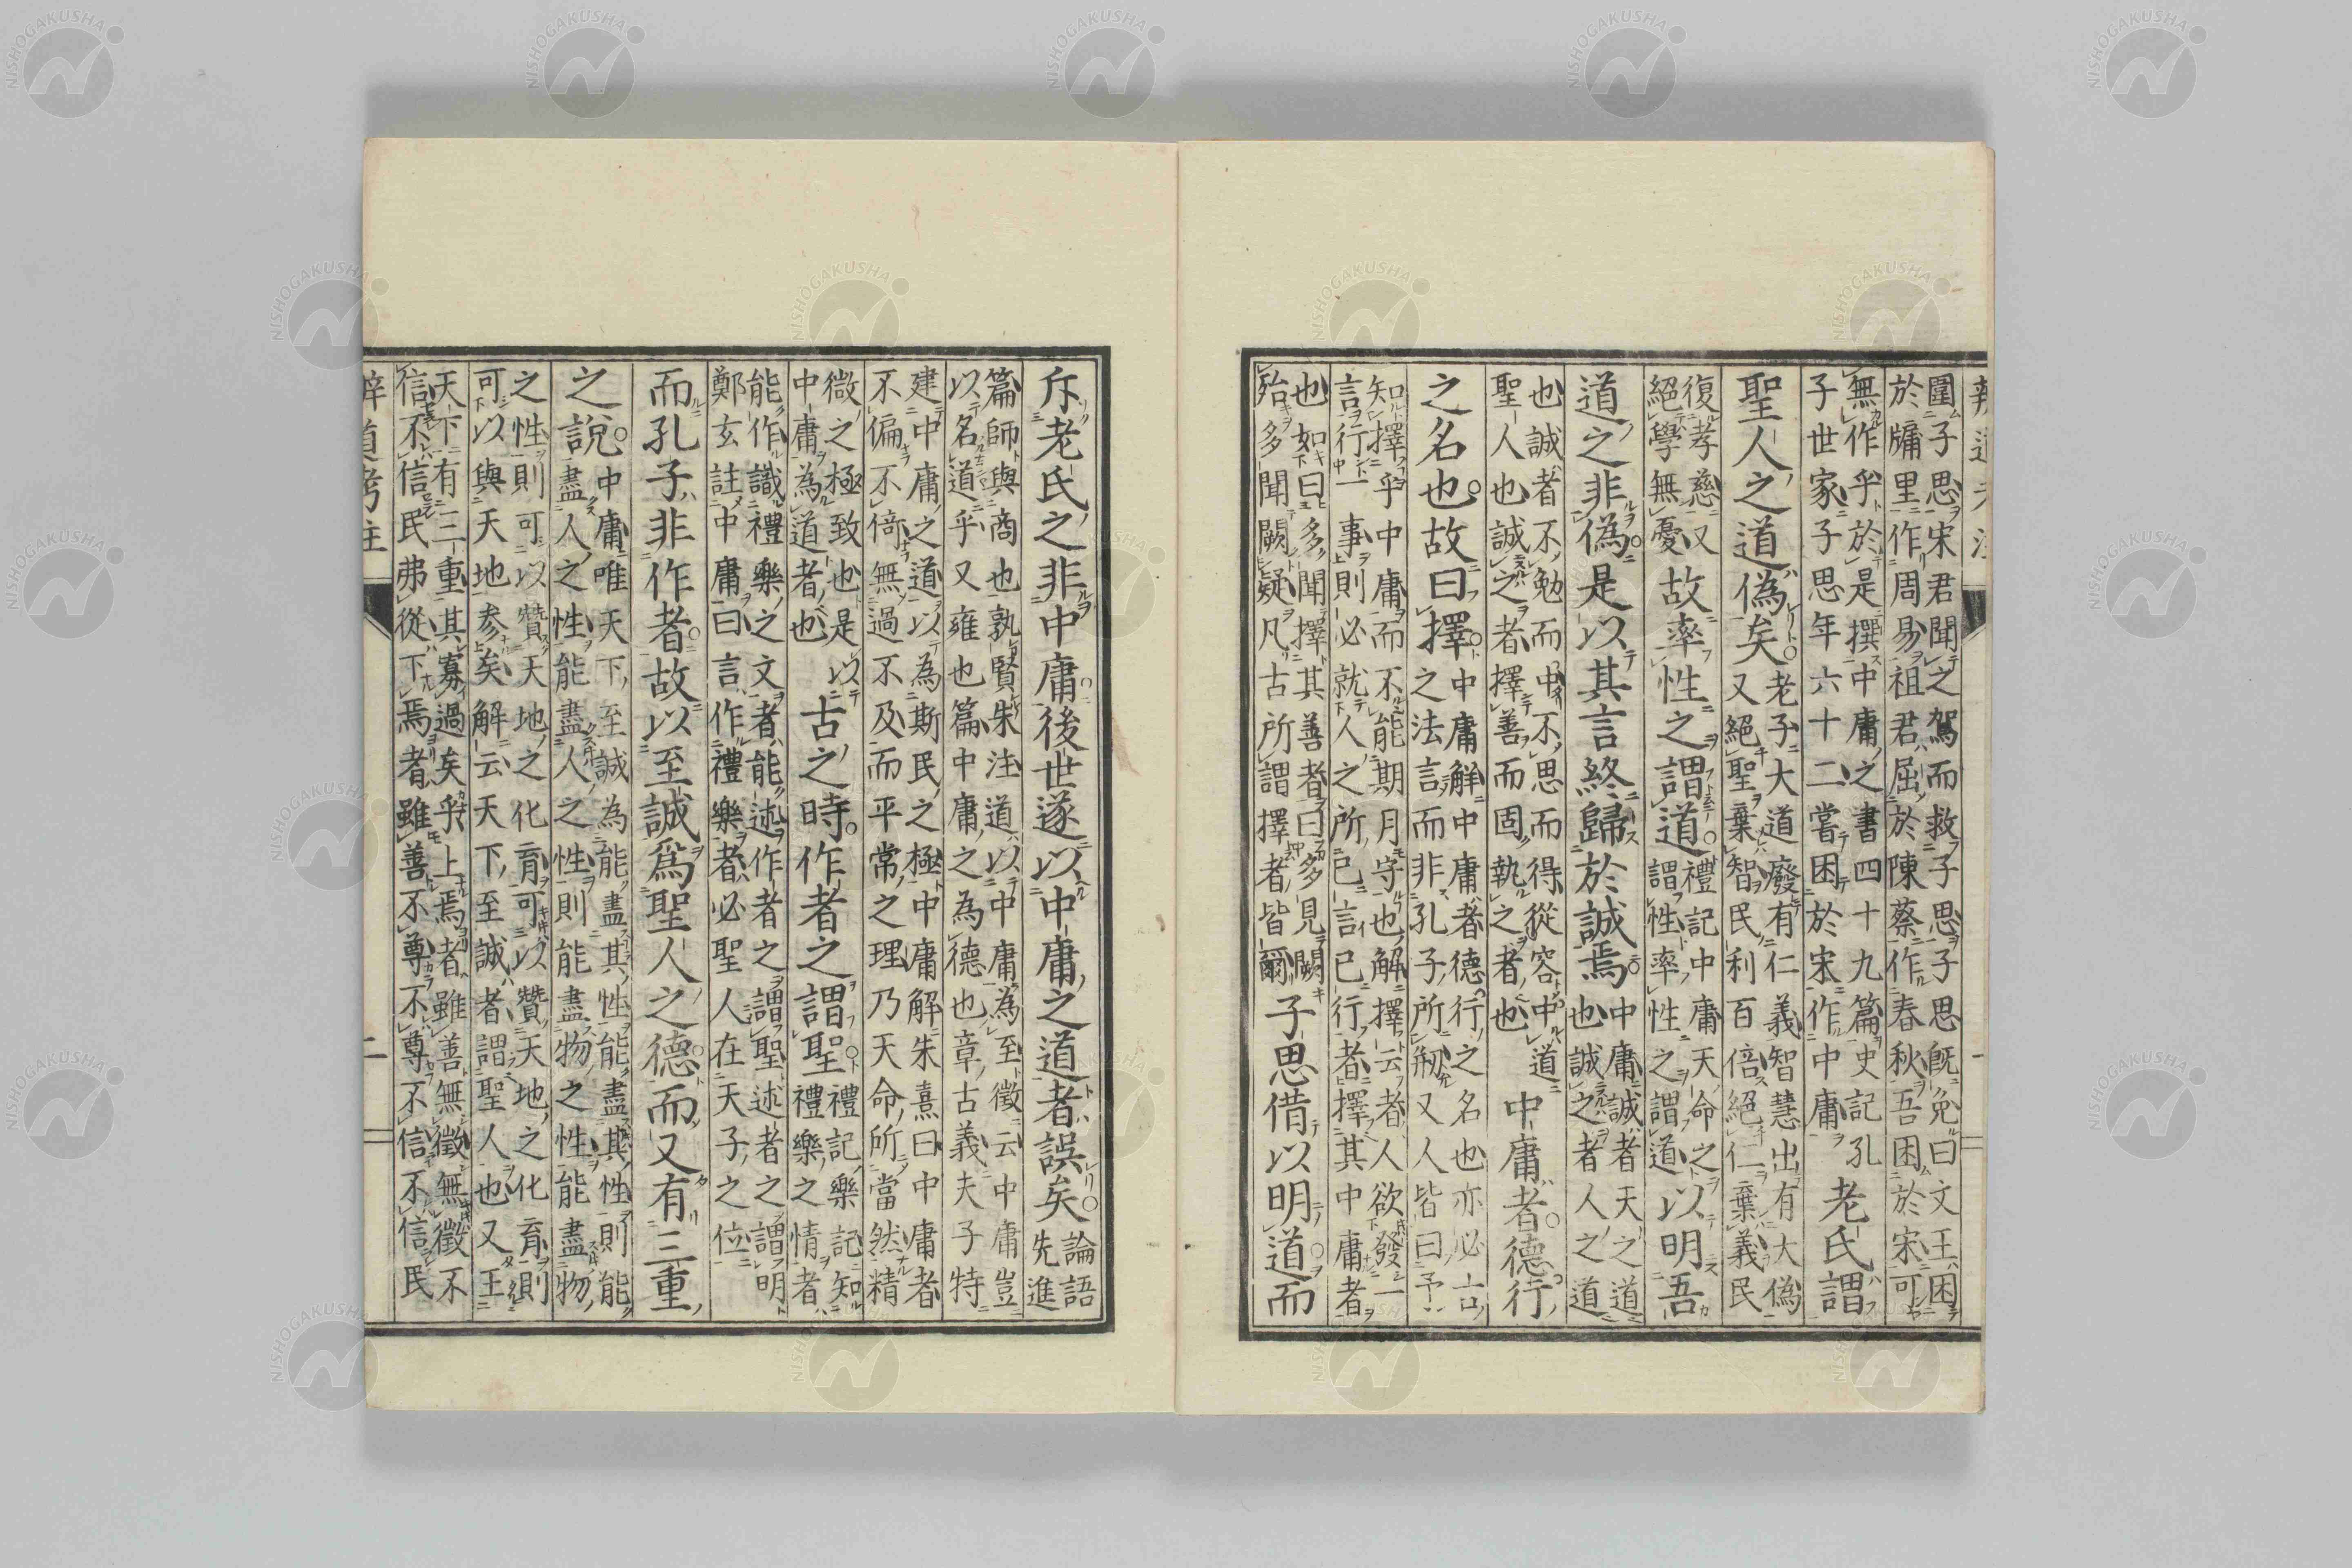 圍子思宋君聞之駕而救子思子思既免曰文王困
於牖里作周易祖君屈於陳蔡作春秋吾困於宋可
無作乎於是撰中庸之書四十九篇史記孔
子世家子思年六十二嘗困於宋作中庸
老氏謂
聖人之道偽矣
老子大道廢有仁義智慧出有大偽
又絕聖棄智民利百倍絕仁棄義民
復孝慈又
絕學無憂
故率性之謂道
禮記中庸天命之
謂性率性之謂道
以明吾
道之非偽是以其言終歸於誠焉
中庸誠者天之道
也誠之者人之道
也誠者不勉而中不思而得從容中道
聖人也誠之者擇善而固執之者也
中庸者德行
之名也故曰擇
中庸解中庸者德行之名也亦必古
之法言而非孔子所剏又人皆曰予
知擇乎中庸而不能期月守也解擇云者人欲發一
言行一事則必就人之所已言已行者擇其中庸者
也如曰多聞擇其善者曰多見闕
殆多聞闕疑凡古所謂擇者皆爾
子思借以明道而
斥老氏之非中庸後世遂以中庸之道者誤矣
論語
先進
篇師與商也孰賢朱注道以中庸為至徵云中庸豈
以名道乎又雍也篇中庸之為德也章古義夫子特
建中庸之道以為斯民之極中庸解朱熹曰中庸者
不偏不倚無過不及而平常之理乃天命所當然精
微之極致也是以
中庸為道者也
古之時作者之謂聖
禮記樂記知
禮樂之情者
能作識禮樂之文者能述作者之謂聖述者之謂明
鄭玄註中庸曰言作禮樂者必聖人在天子之位
而孔子非作者故以至誠爲聖人之德而又有三重
之說
中庸唯天下至誠為能盡其性能盡其性則能
盡人之性能盡人之性則能盡物之性能盡物
之性則可以贊天地之化育可以贊天地之化育則
可以與天地参矣解云天下至誠者謂聖人也又王
天下有三重其寡過矣乎上焉者雖善無徵無徵不
信不信民弗從下焉者雖善不尊不尊不信不信民
辨道考註
二
NISHOGAKUSHA